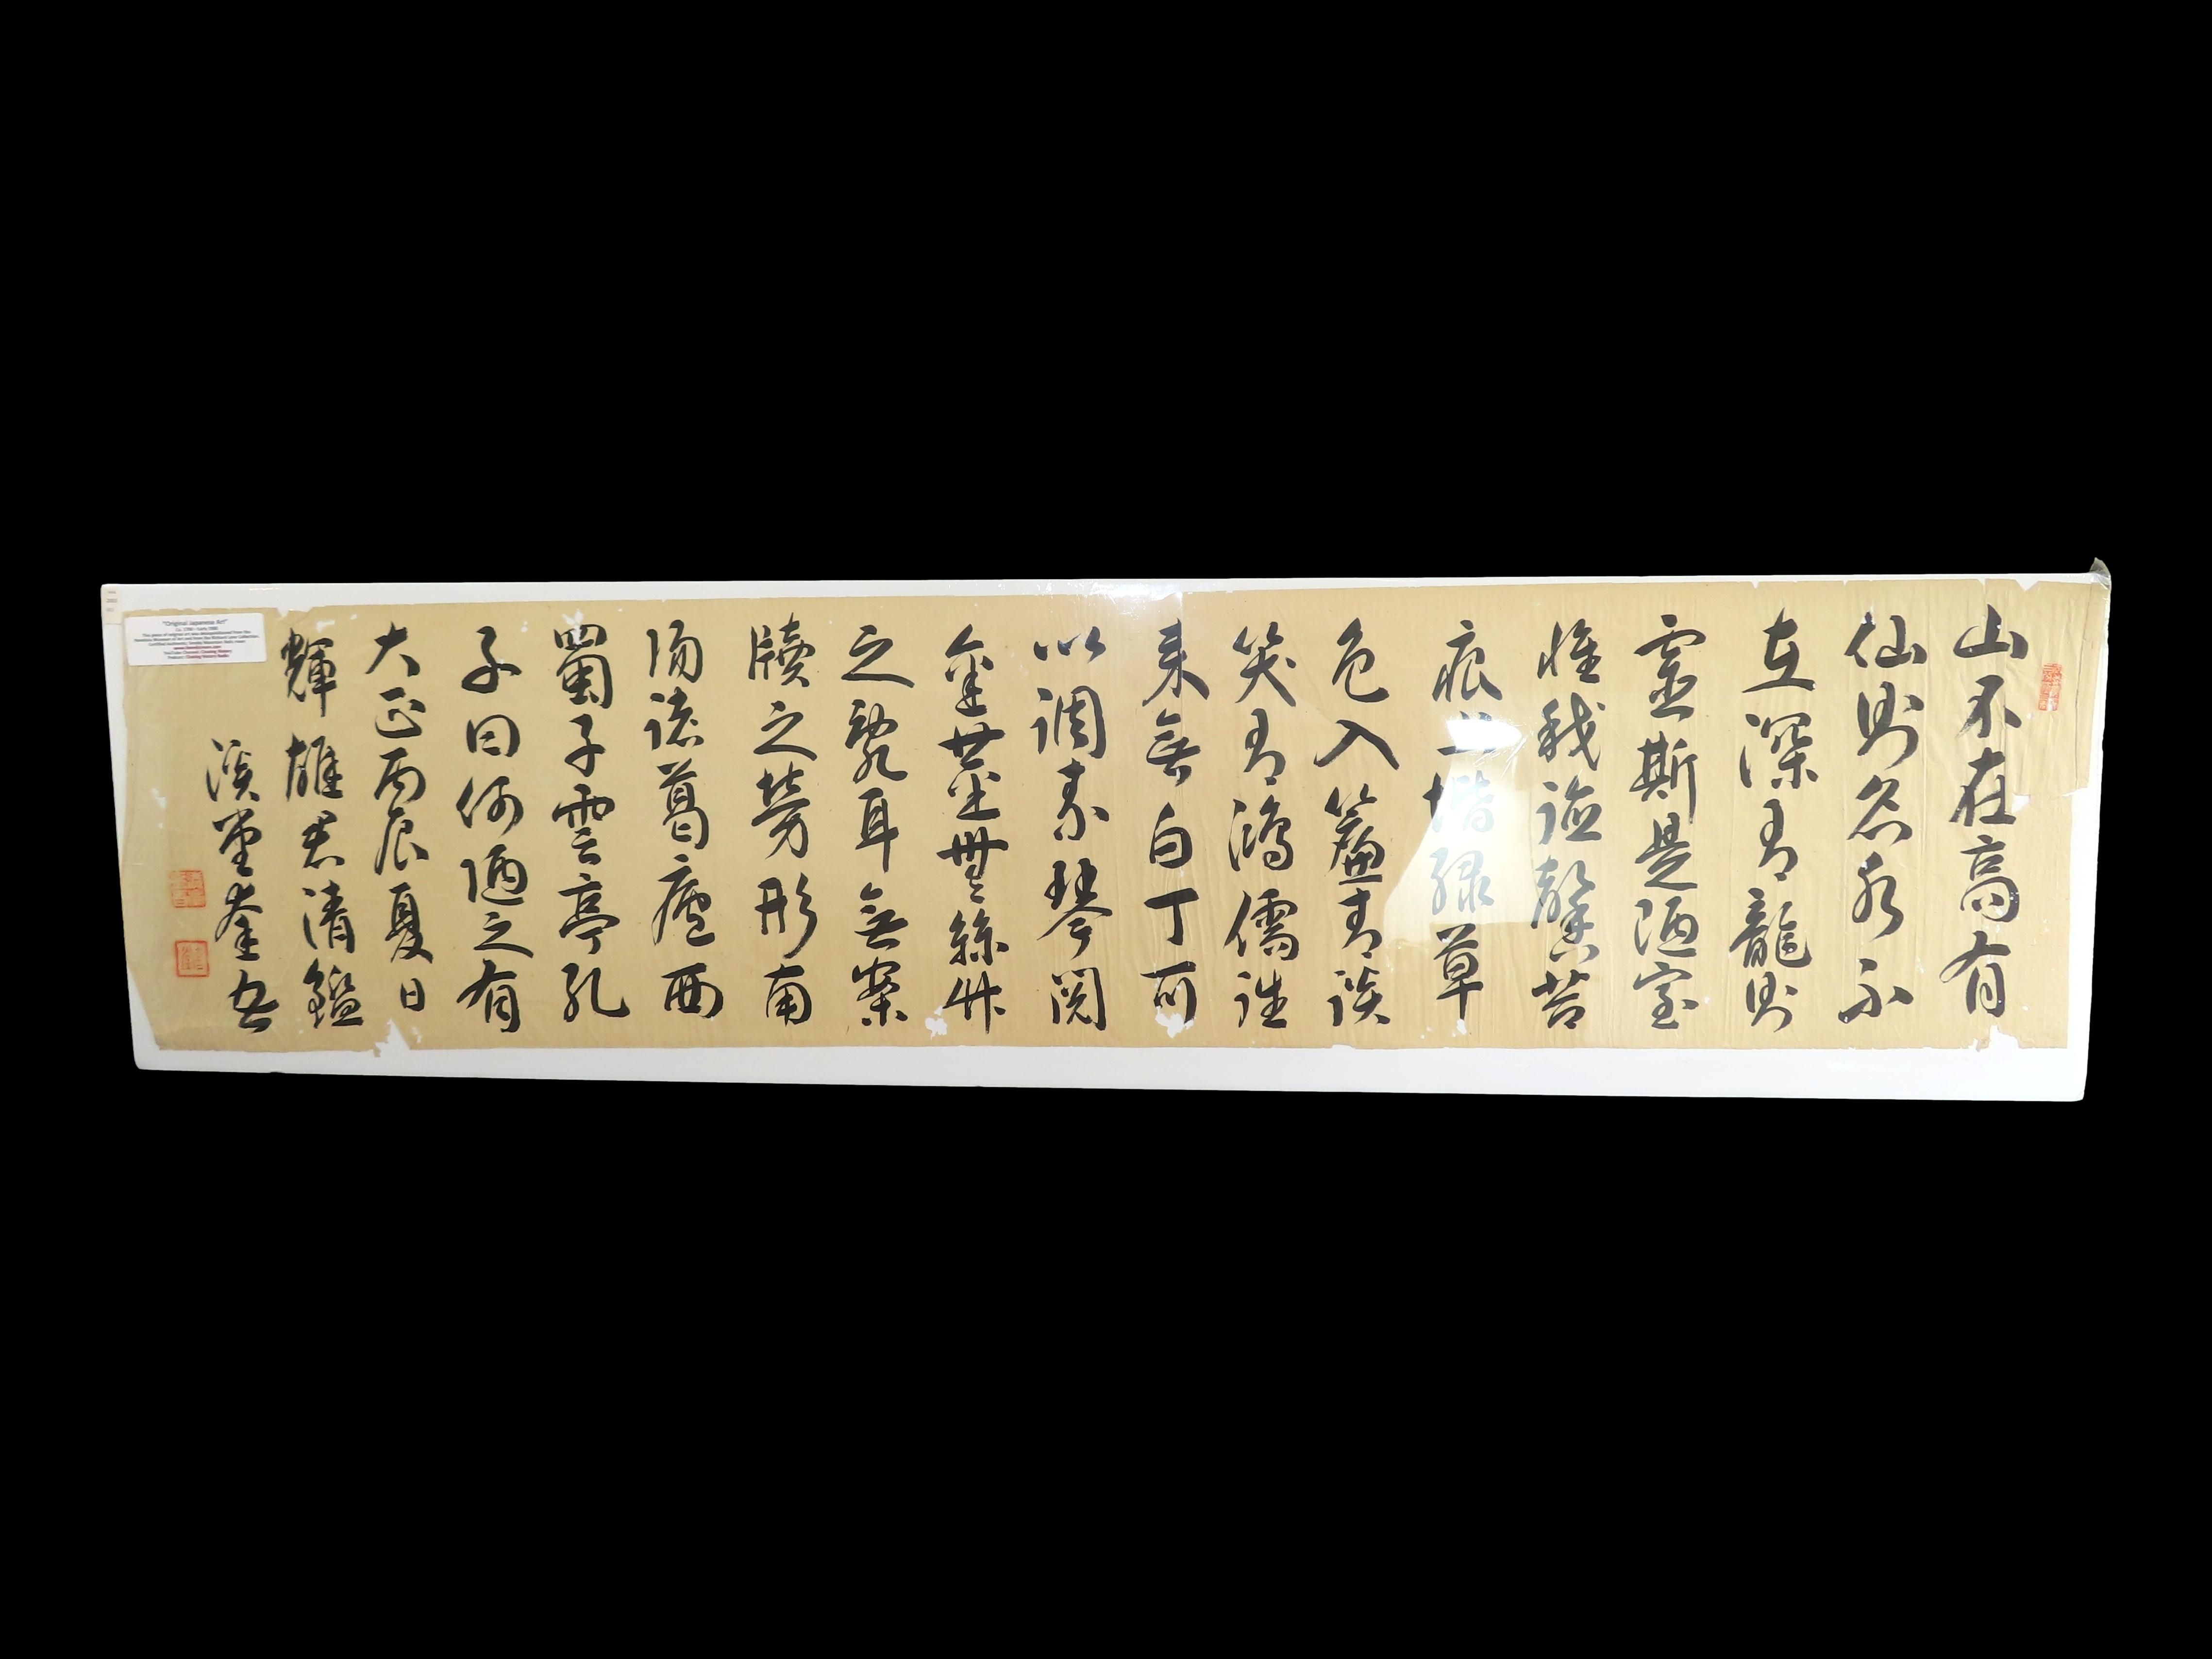 山不在高有
仙則名水不
在深有龍則
靈斯是陋室
惟我德馨苔
痕上堦綠草
色入簾青談
笑有鴻儒往
来無白丁可
以調素琴閲
金無絲竹
之亂耳無案
牘之勞形南
陽諸葛廬西
蜀子雲亭孔
子曰何陋之有
大正丙辰夏日
輝雄君清鑑
溪堂奎
"Original Japanese Art"